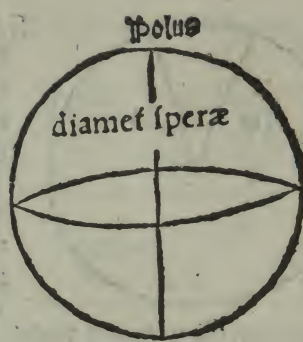 Polus
diamet ſperæ